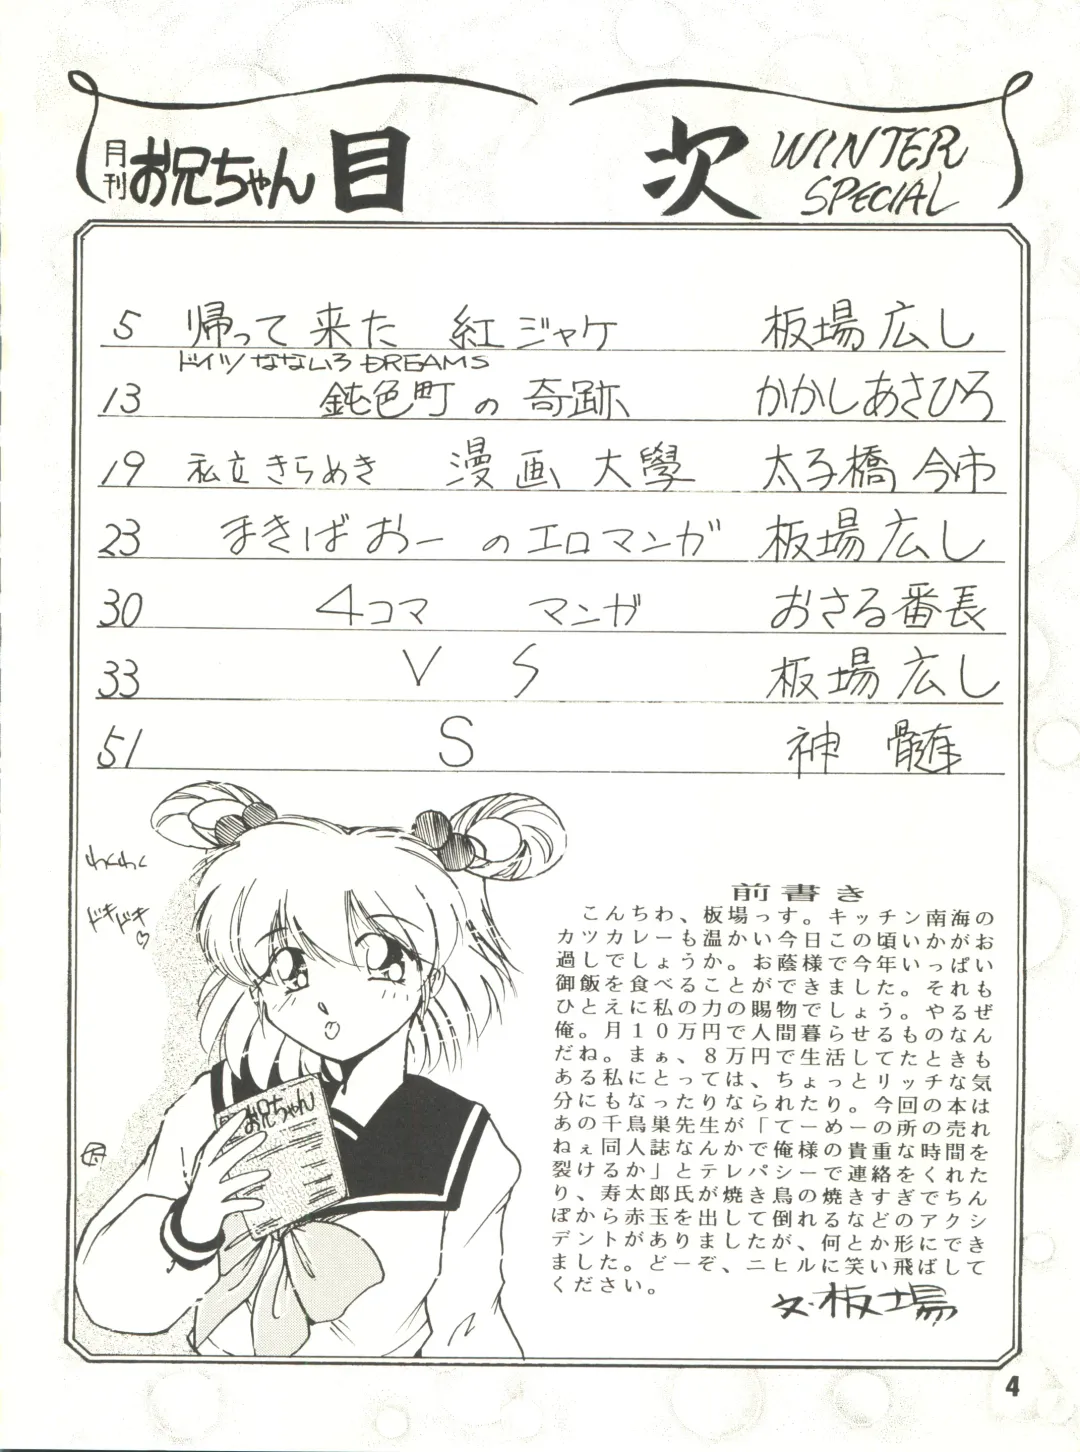 月刊お兄ちゃん 目次 WINTER SPECIAL
5 帰って来た 紅ジャケ 板場広し
ドイツなないろDREAMS
13 鈍色町の奇跡 かかしあさひろ
19 私立きらめき 漫画大學 太子橋今市
23 まきばおーのエロマンガ 板場広し
30 4コマ マンガ おさる番長
33 VS 板場広し
51 S 神髄
わくわく
ドキドキ♡
お兄ちゃん
前書き
こんちわ、板場っす。キッチン南海の
カツカレーも温かい今日この頃いかがお
過しでしょうか。お蔭様で今年いっぱい
御飯を食べることができました。それも
ひとえに私の力の賜物でしょう。やるぜ
俺。月10万円で人間暮らせるものなん
だね。まぁ、8万円で生活してたときも
ある私にとっては、ちょっとリッチな気
分にもなったりなられたり。今回の本は
あの千鳥巣先生が「てーめーの所の売れ
ねぇ同人誌なんかで俺様の貴重な時間を
裂けるか」とテレパシーで連絡をくれた
り、寿太郎氏が焼き鳥の焼きすぎでちん
ぽから赤玉を出して倒れるなどのアクシ
デントがありましたが、何とか形にでき
ました。どーぞ、ニヒルに笑い飛ばして
ください。
文・板場
4